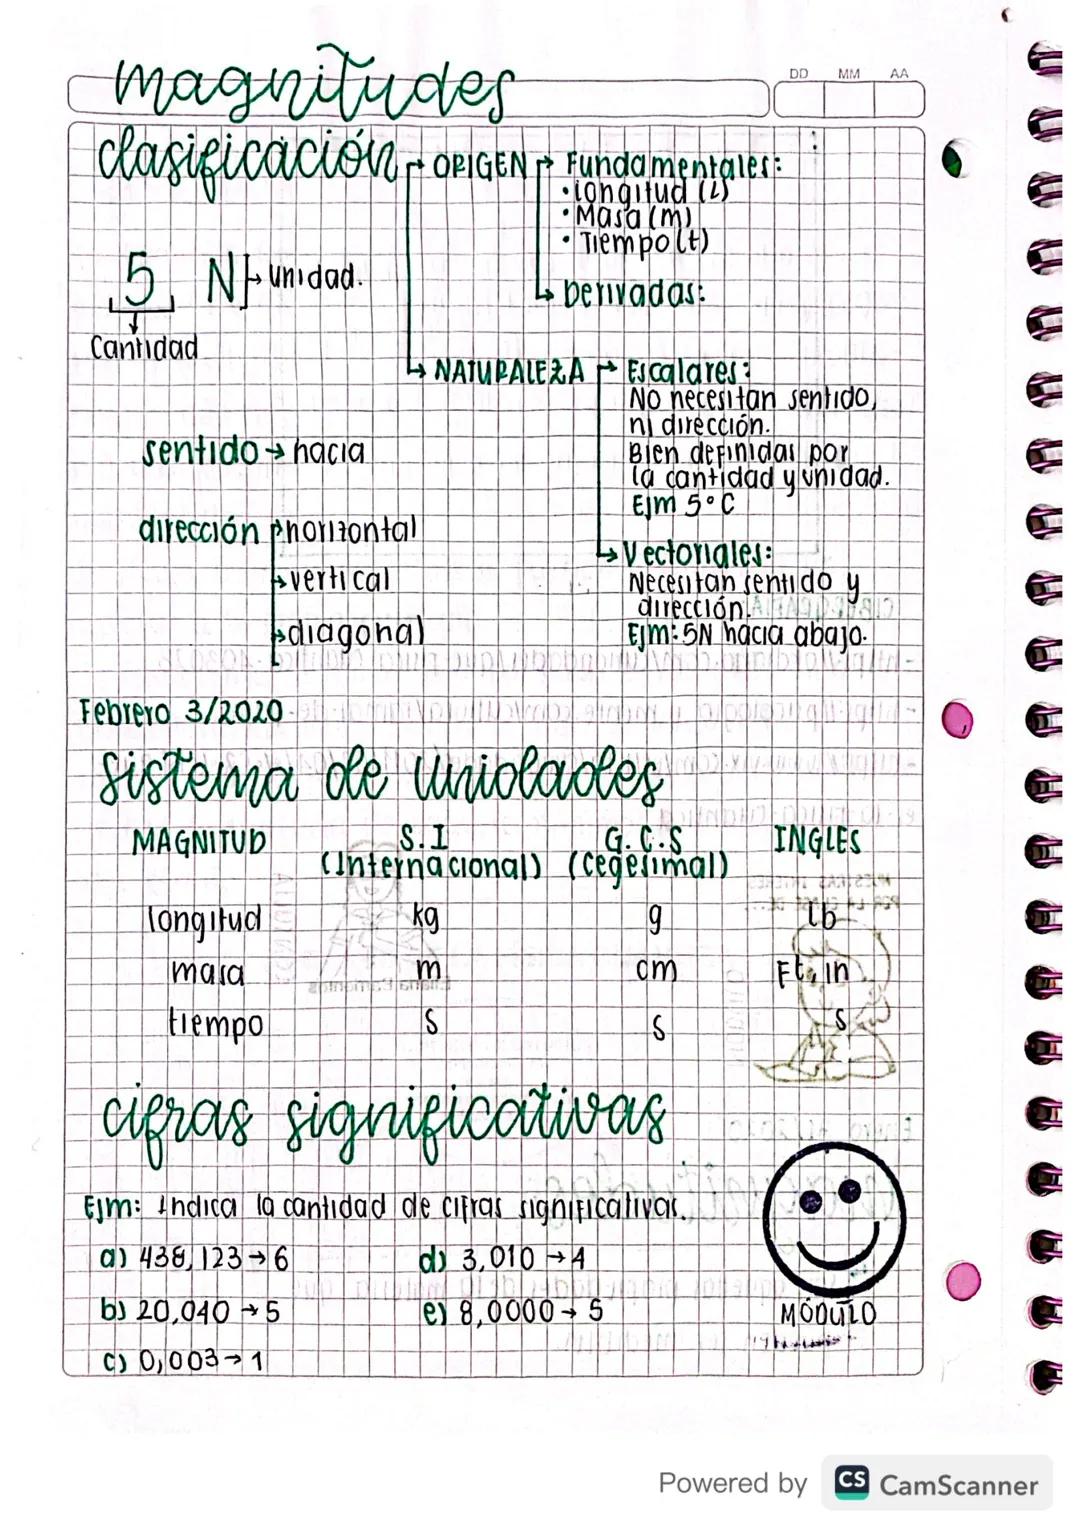 magnitudes
DD MM AA
clasificación
ORIGEN
Fundamentales:
• longitud (L)
• Masa (m)
• Tiempo (t)
Derivadas:
5 N
unidad.
Cantidad
NATURALEZA
Escalares:
No necesitan sentido,
ni dirección.
Bien definidas por
la cantidad y unidad.
Ejm 5°C
Vectoriales:
Necesitan sentido y
dirección.
Ejm: 5N hacia abajo.
sentido → hacia
dirección → horizontal
→ vertical
→ diagonal
Febrero 3/2020
sistema de unidades
MAGNITUD S.I G.C.S INGLES
(Internacional) (Cegesimal)
longitud kg g lb
masa m cm Ft, in
tiempo s s s
cifras significativas
Ejm: Indica la cantidad de cifras significativas.
a) 438,123 → 6 d) 3,010 → 4
b) 20,040 → 5 e) 8,0000 → 5
c) 0,003 → 1
MÓDULO
Powered by CS CamScanner